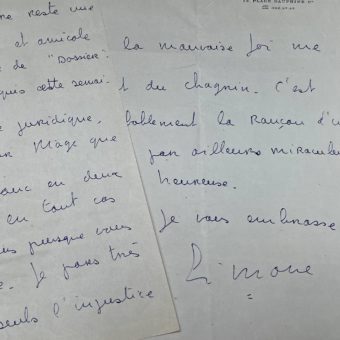 me reste une
et amicale
de "Dossiers".
cette semai-
e juridique,
Mage que
donc en deux
en tout cas
puisque vous
e. Je pars très
seuls l'injustice
PLACE DAUPHINE
la mauvaise foi me
t du chagrin. C'est
bablement la rançon d'u
par ailleurs miracul
heureuse.
Je vous embrasse
Simone